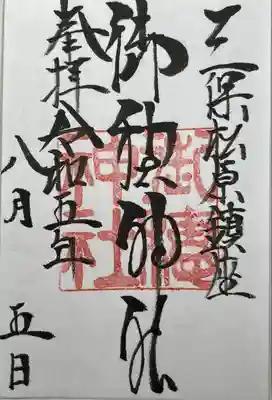 三保松原鎮座
御穂神社
奉拝 令和五年
八月 五日
御穂
神社